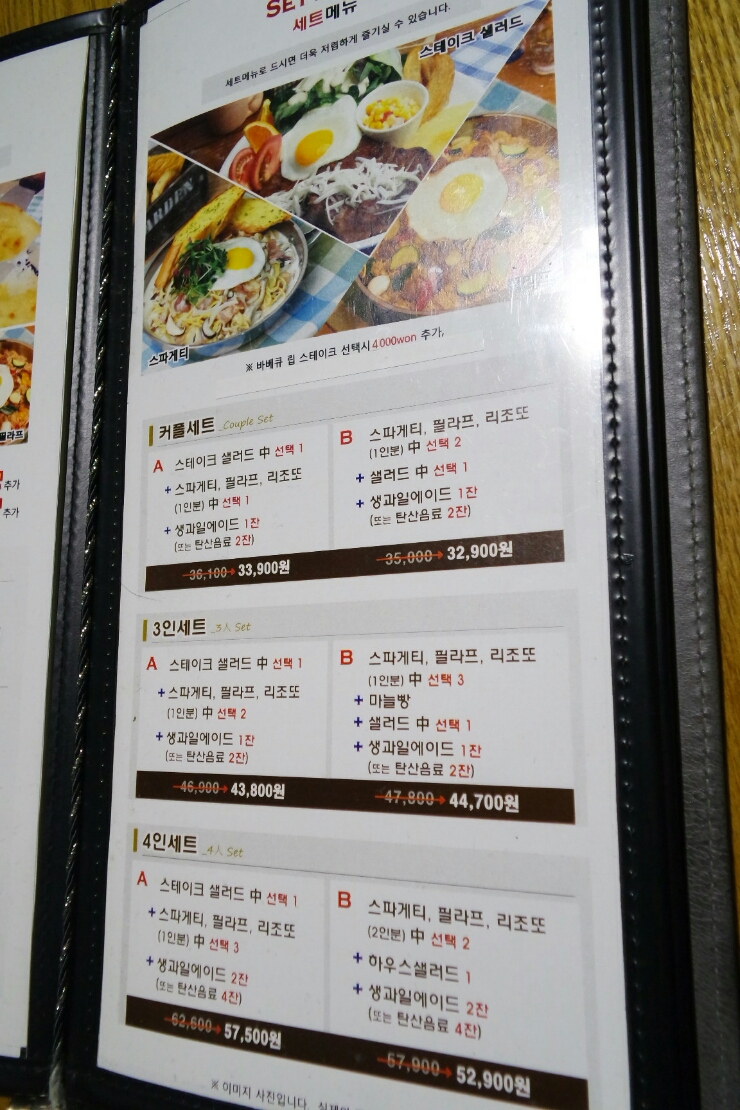 세트메뉴
세트메뉴로 드시면 더욱 저렴하게 즐기실 수 있습니다.
스테이크 샐러드
스파게티
※ 바베큐 립 스테이크 선택시 4000won 추가,
필라프
추가
추가
커플세트 _Couple Set
A 스테이크 샐러드 中 선택 1
+ 스파게티, 필라프, 리조또
(1인분) 中 선택 1
+ 생과일에이드 1잔
(또는 탄산음료 2잔)
36,100→ 33,900원
B 스파게티, 필라프, 리조또
(1인분) 中 선택 2
+ 샐러드 中 선택 1
+ 생과일에이드 1잔
(또는 탄산음료 2잔)
35,000→ 32,900원
3인세트 _3人 Set
A 스테이크 샐러드 中 선택 1
+ 스파게티, 필라프, 리조또
(1인분) 中 선택 2
+ 생과일에이드 1잔
(또는 탄산음료 2잔)
46,900→ 43,800원
B 스파게티, 필라프, 리조또
(1인분) 中 선택 3
+ 마늘빵
+ 샐러드 中 선택 1
+ 생과일에이드 1잔
(또는 탄산음료 2잔)
47,800→ 44,700원
4인세트 _4人 Set
A 스테이크 샐러드 中 선택 1
+ 스파게티, 필라프, 리조또
(1인분) 中 선택 3
+ 생과일에이드 2잔
(또는 탄산음료 4잔)
62,600→ 57,500원
B 스파게티, 필라프, 리조또
(2인분) 中 선택 2
+ 하우스샐러드 1
+ 생과일에이드 2잔
(또는 탄산음료 4잔)
57,900→ 52,900원
※ 이미지 사진입니다.